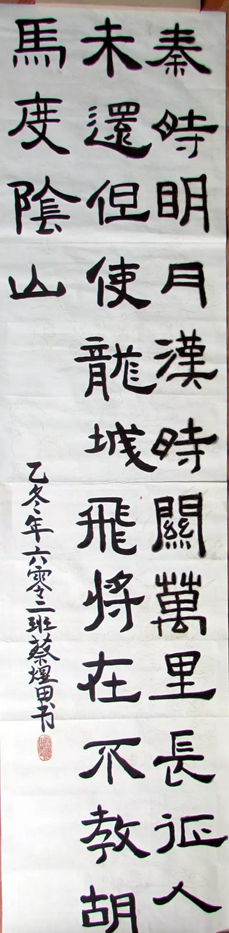 秦時明月漢時關萬里長征人
未還但使龍城飛將在不教胡
馬度陰山
乙冬年六零二班蔡煜田书